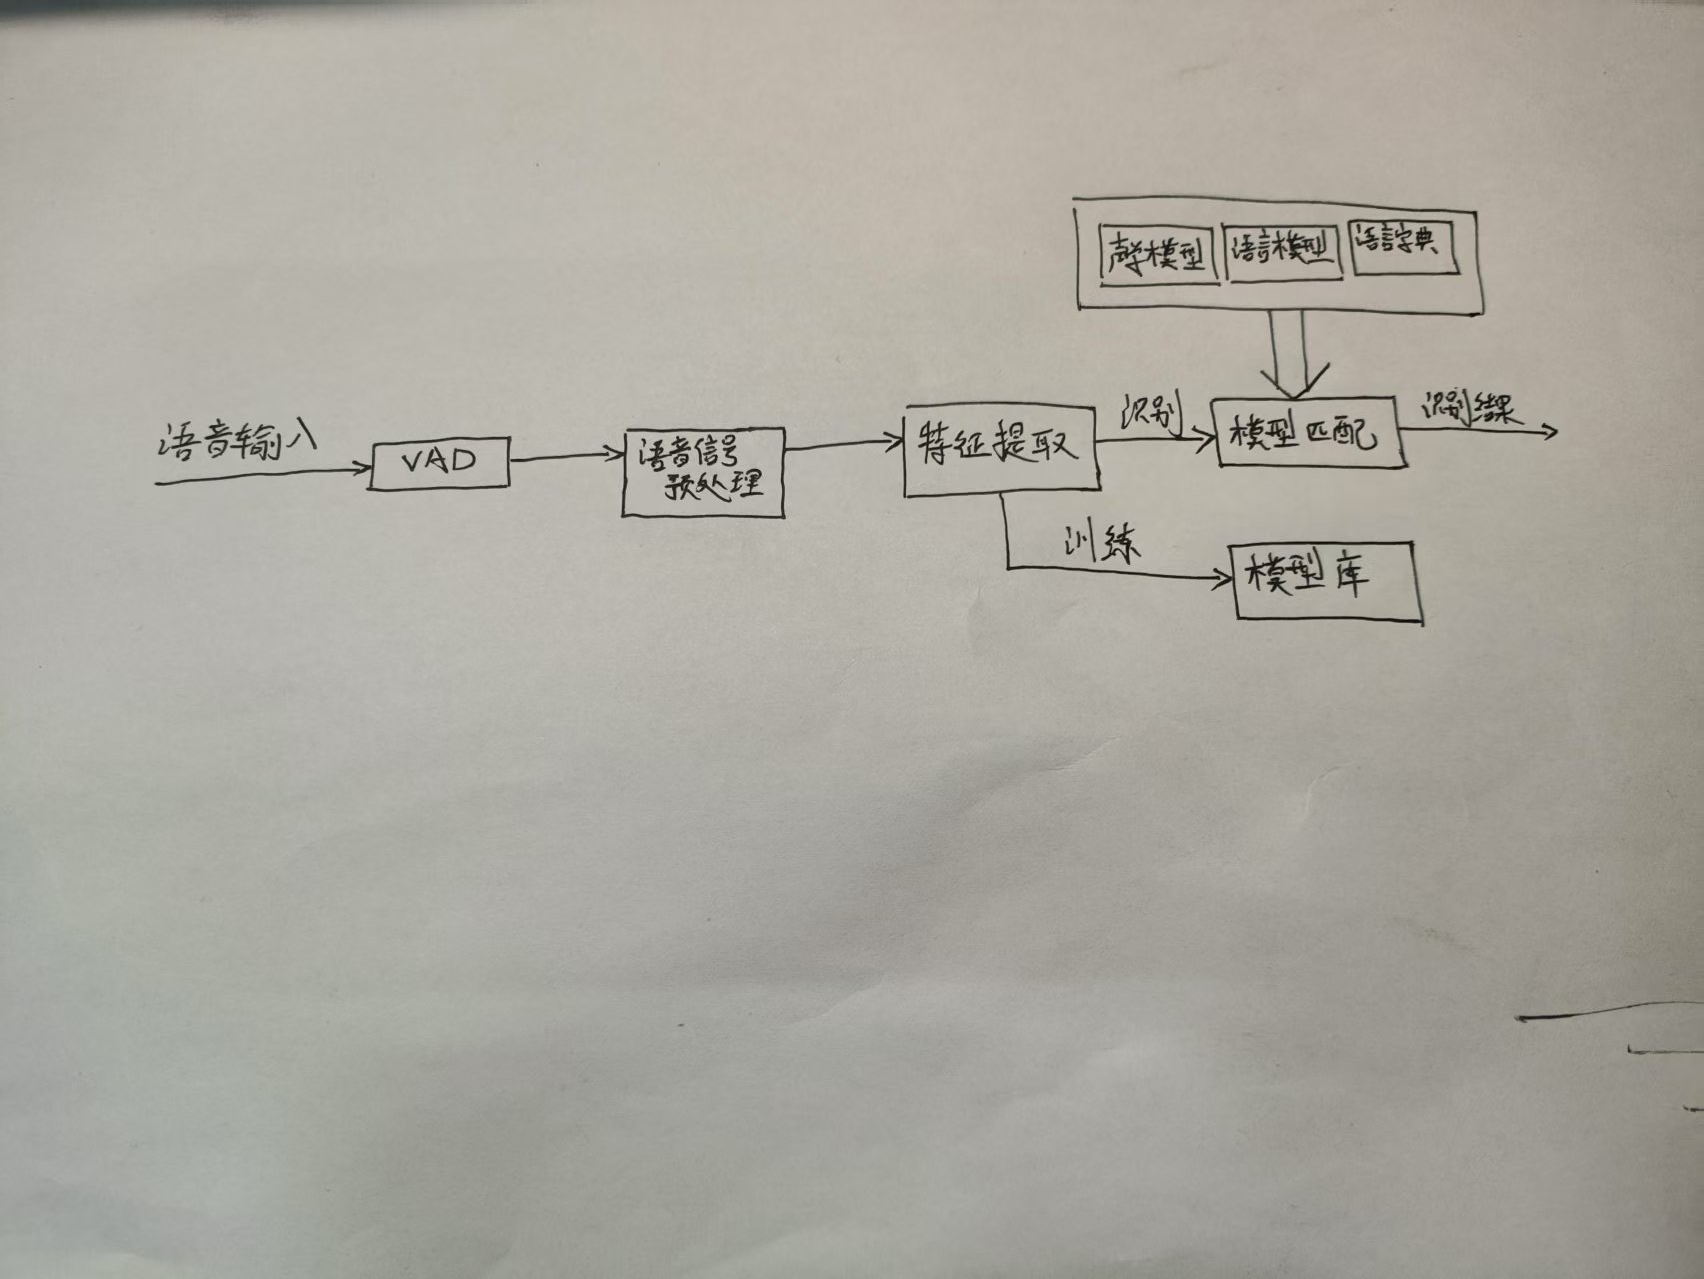 声学模型
语言模型
语言字典
语音输入
VAD
语音信号
预处理
特征提取
识别
模型匹配
识别结果
训练
模型库